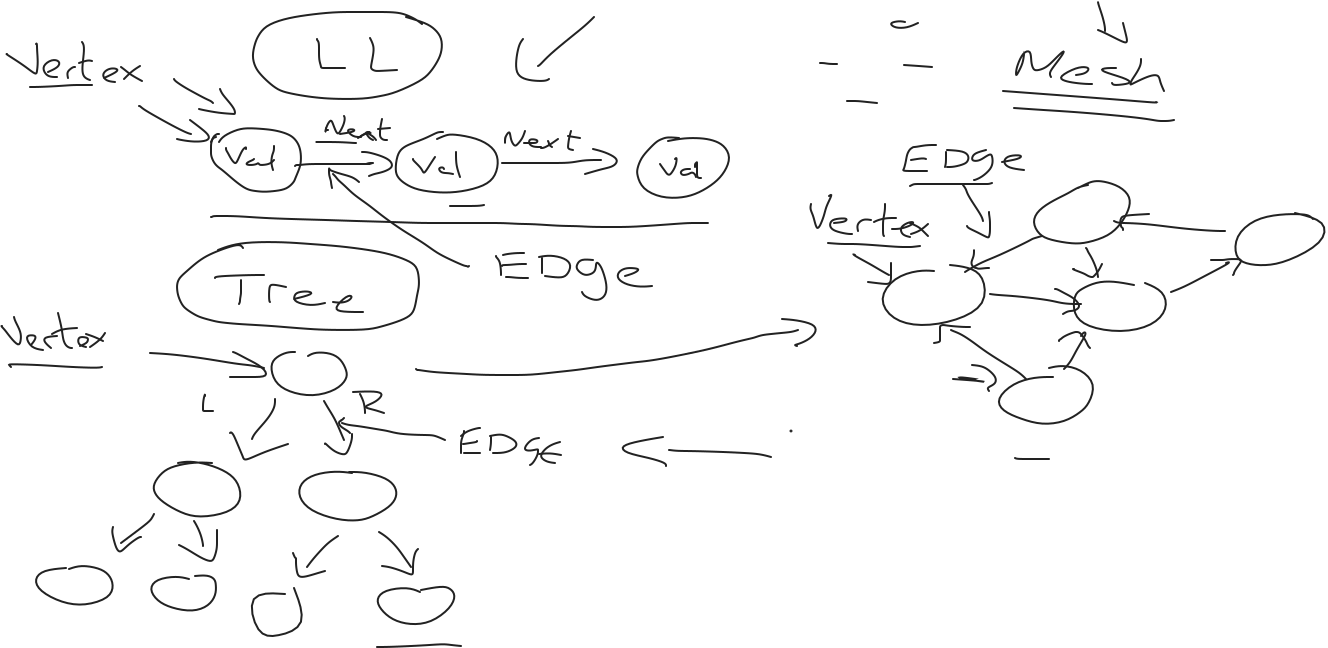 LL
Vertex
Next
Next
Val
Val
Val
EDge
Tree
Vertex
L
R
EDGE
Mesh
EDge
Vertex